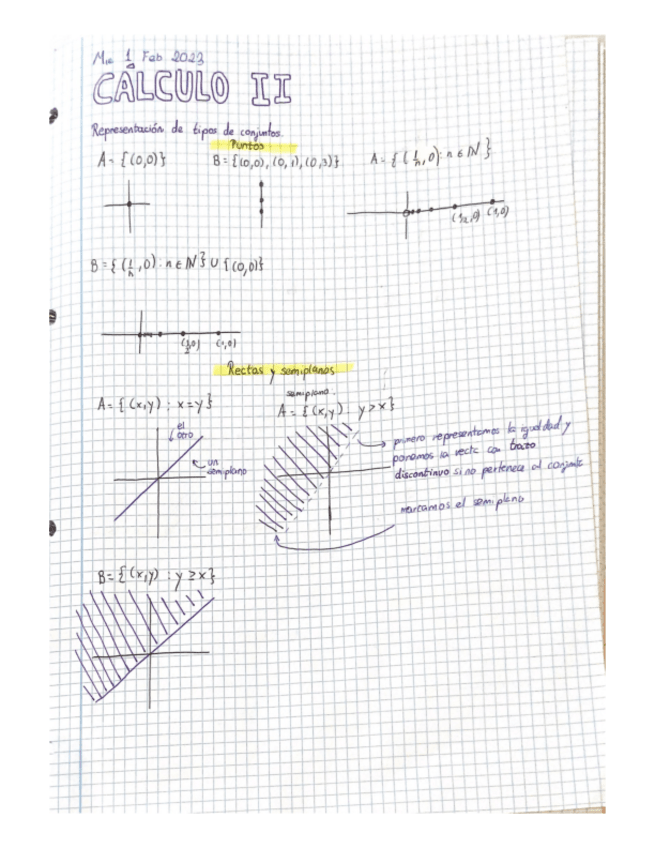 Mie 1 Feb 2023
CÁLCULO II
Representación de tipos de conjuntos.
Puntos
A = {(0,0)}
B = {(0,0), (0,1), (0,3)}
A = {(1/n, 0) : n ∈ N}
(1/2,0) (1,0)
B = {(1/n, 0) : n ∈ N} ∪ {(0,0)}
(1/2,0) (1,0)
Rectas y semiplanos
A = {(x,y) : x = y}
el otro
un semiplano
semiplano.
A = {(x,y) : y > x}
primero representamos la igualdad y
ponemos la recta con trazo
discontinuo si no pertenece al conjunto
marcamos el semiplano
B = {(x,y) : y ≥ x}